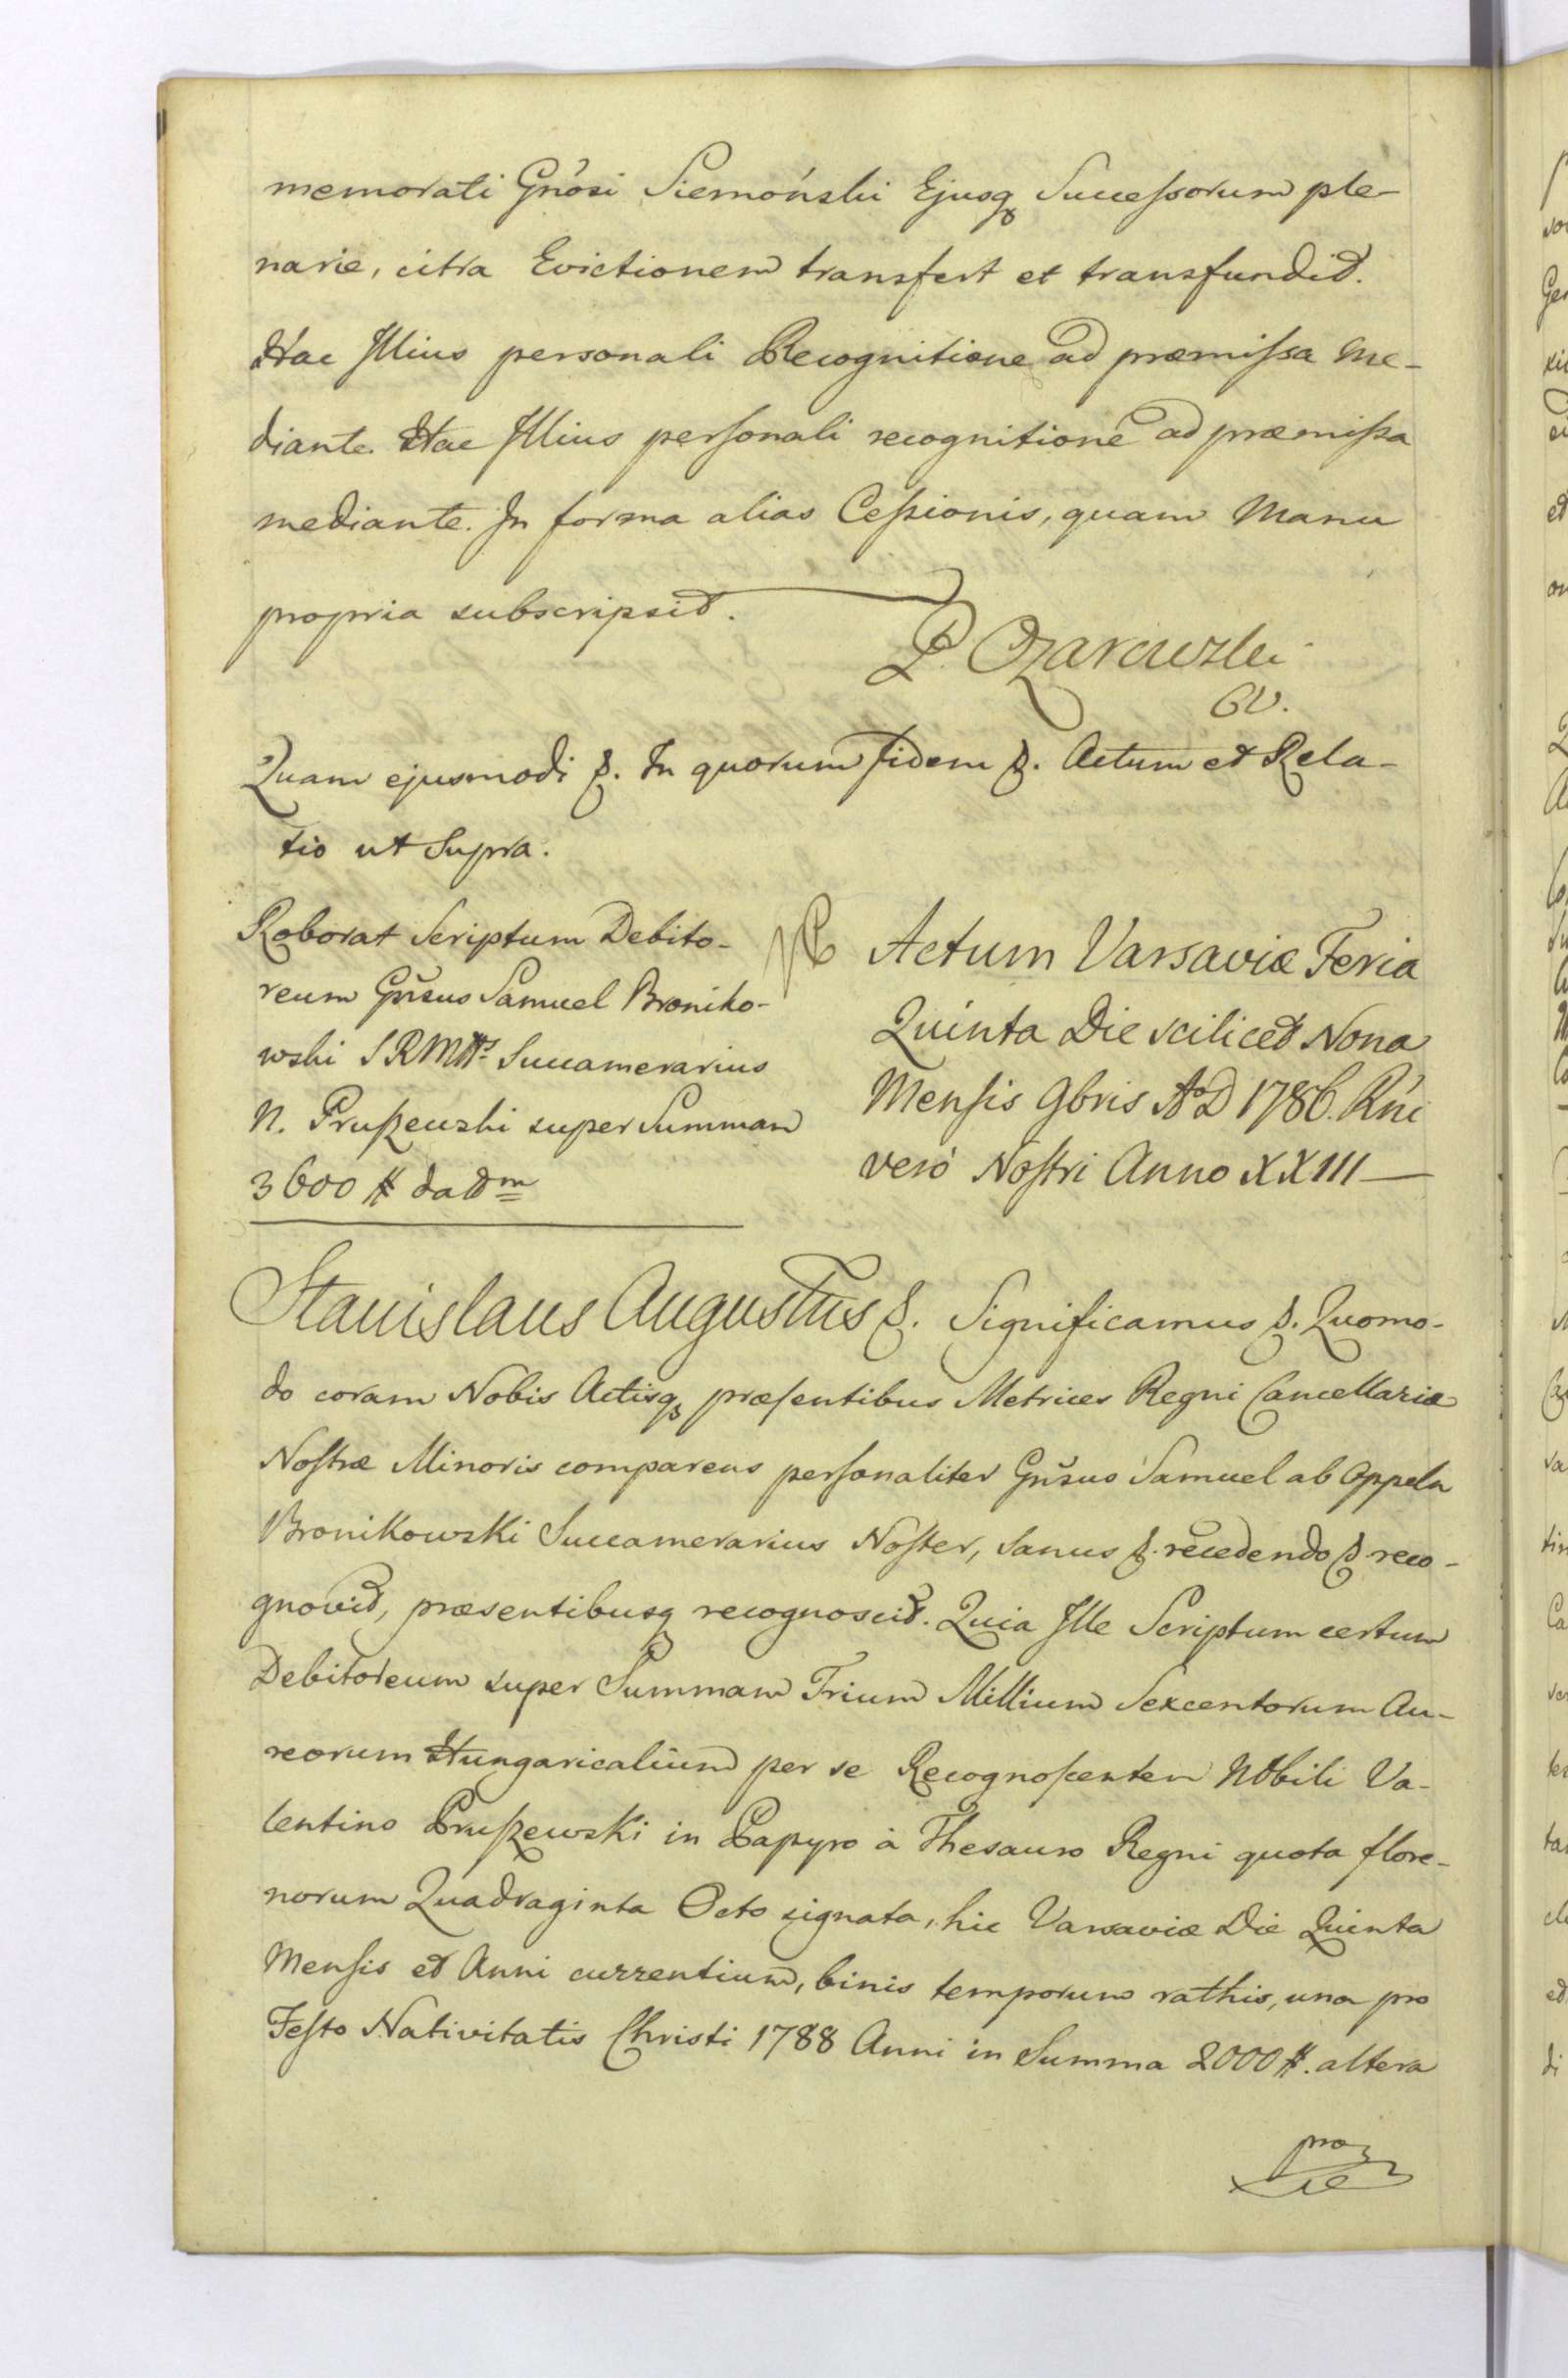 memorati Gnosi Siemoński Ejusq Successorum ple-
narie, citra Evictionem transfert et transfundit.
Hac Illius personali Recognitione ad præmissa me-
diante. Hac Illius personali recognitione ad præmissa
mediante. In forma alias Cessionis, quam Manu
propria subscripsit.
P. Ożarowski
Quam ejusmodi &. In quorum fidem &. Actum et Rela-
tio ut Supra.
Roborat Scriptum Debito-
reum Gnsus Samuel Broniko-
wski SRMtts Succamerarius
N. Pruszewski super Summam
3600 # datam
Actum Varsaviæ Feria
Quinta Die scilicet Nona
Mensis 9bris AoD 1786. Rni
vero Nostri Anno XXIII
Stanislaus Augustus &. Significamus &. Quomo-
do coram Nobis Actisq præsentibus Metrices Regni Cancellariæ
Nostræ Minoris comparens personaliter Gnsus Samuel ab Oppeln
Bronikowski Succamerarius Noster, sanus &. recedendo &. reco-
gnovit, præsentibusq recognoscit. Quia Ille Scriptum certum
Debitoreum super Summam Trium Millium Sexcentorum Au-
reorum Hungaricalium per se Recognoscentem Nobili Va-
lentino Pruszewski in Papyro à Thesauro Regni quota flore-
norum Quadraginta Octo signata, hic Varsaviæ Die Quinta
Mensis et Anni currentium, binis temporum rathis, una pro
Festo Nativitatis Christi 1788 Anni in Summa 2000 #. altera
pro